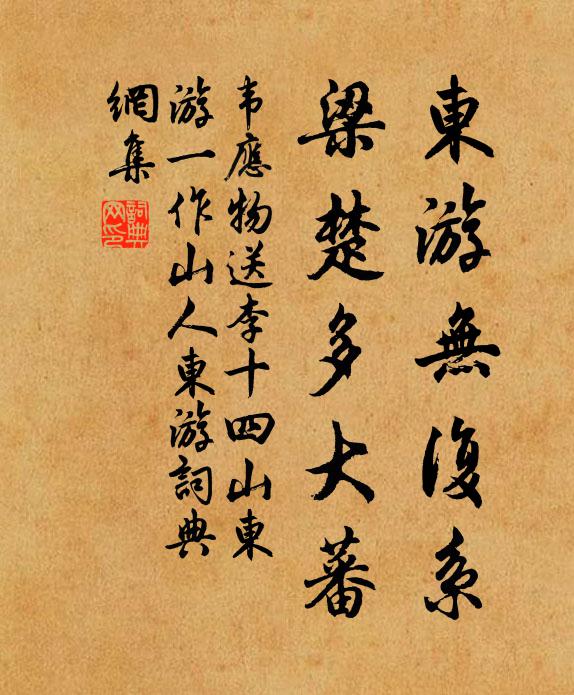 東游無復系
梁楚多大蕃
韦應物送李十四山東
游一作山人東游詞典
網集
詞典網印